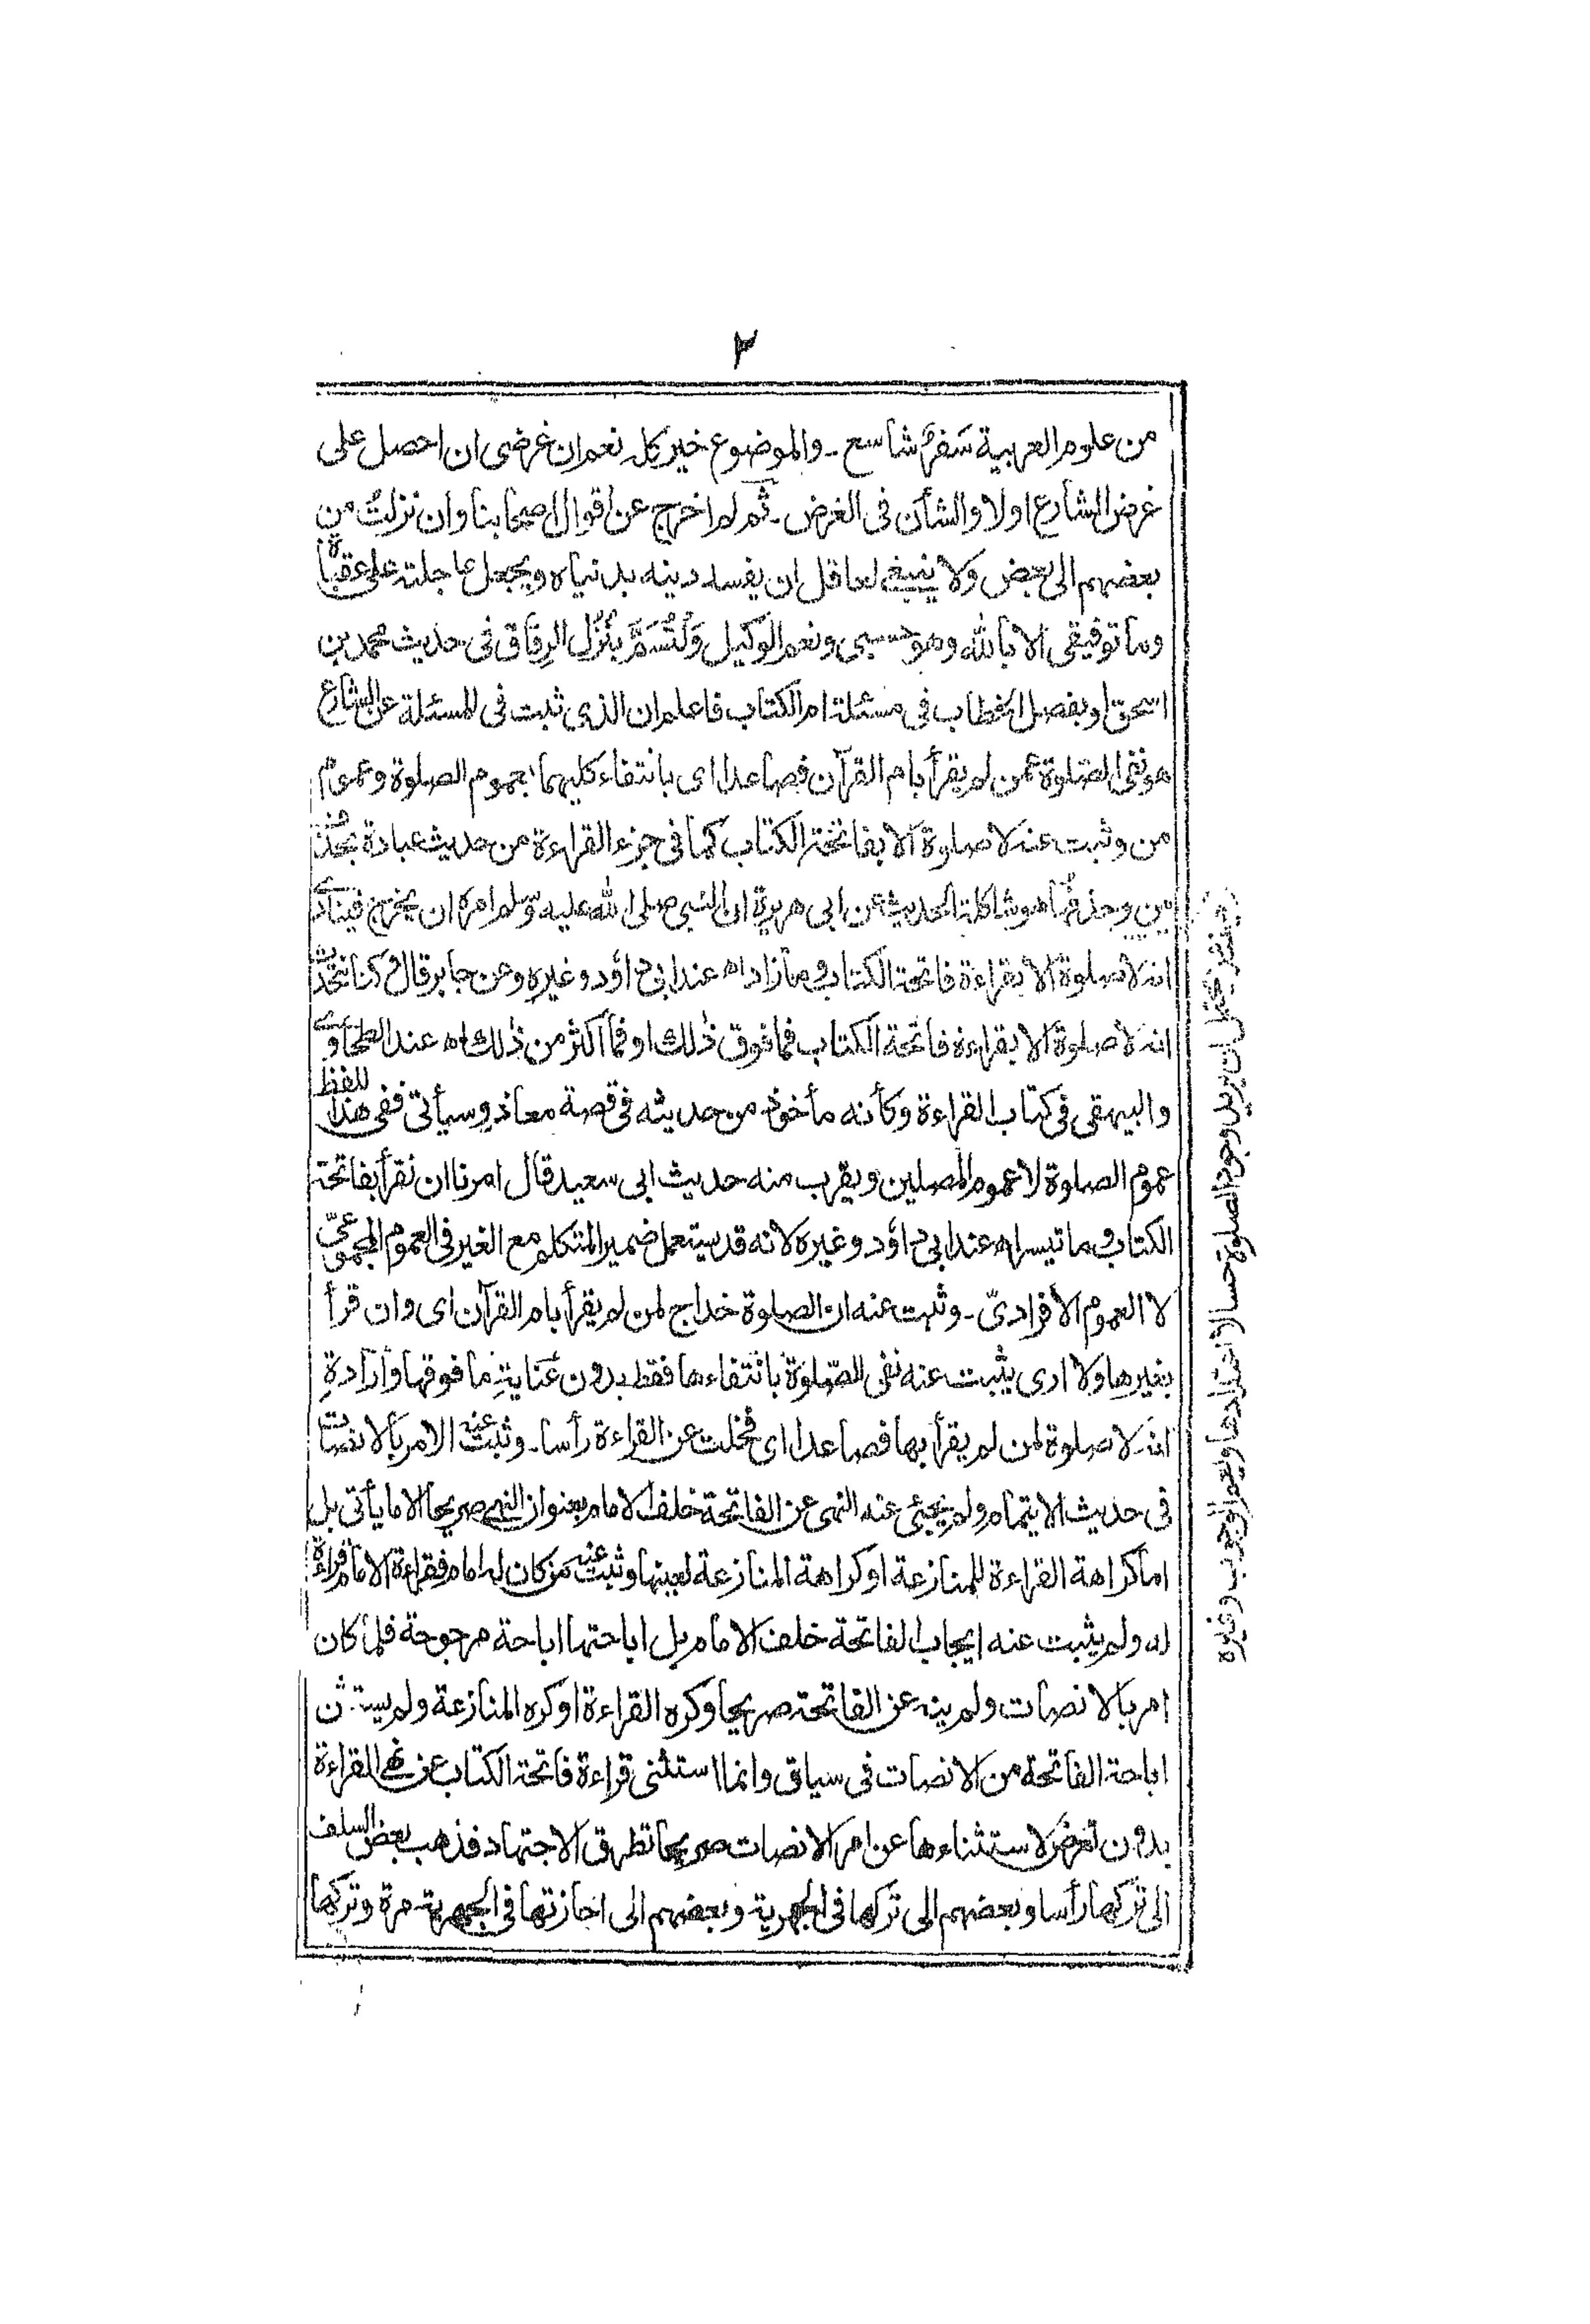 ٢
من علوم العربية سَفَرٌ شاسع ـ والموضوع خير كله نعم ان غرضى ان احصل على
غرض الشارع اولا والشأن فى الغرض ـ ثم لم اخرج عن اقوال اصحابنا وان نزلتُ من
بعضهم الى بعض ولا ينبغى لعاقل ان يفسد دينه بدنياه ويجعل عاجلته على عقباه
وما توفيقى الا بالله وهو حسبى ونعم الوكيل وَلْتُسَمَّ بنُزُل الرِفاق فى حديث محمد بن
اسحق او بفصل الخطاب فى مسئلة ام الكتاب فاعلم ان الذى ثبت فى المسئلة عن الشارع
هو نفى الصّلوة عمن لم يقرأ بام القرآن فصاعدا اى بانتفاء كليهما بعموم الصلوة وعموم
من وثبت عنه لا صلوة الا بفاتحة الكتاب كما فى جزء القراءة من حديث عبادة بحذف
من وحذفُها هو شاكلة الحديث عن ابى هريرة ان النبى صلى الله عليه وسلم امره ان يخرج فينادى
انه لا صلوة الا بقراءة فاتحة الكتاب وما زاد اه عند ابى داؤد وغيره وعن جابر قال وكنا نتحدث
انه لا صلوة الا بقراءة فاتحة الكتاب فما فوق ذٰلك او فما اكثر من ذٰلك اه عند الطحاوى
والبيهقى فى كتاب القراءة وكأنه مأخوذ من حديثه فى قصة معاذ وسيأتى ففى هذا اللفظ
عموم الصلوة لا عموم المصلين ويقرب منه حديث ابى سعيد قال امرنا ان نقرأ بفاتحة
الكتاب وما تيسر اه عند ابى داؤد وغيره لانه قد يستعمل ضمير المتكلم مع الغير فى العموم المجموعىّ
لا العموم الافرادىّ ـ وثبت عنه ان الصلوة خداج لمن لم يقرأ بام القرآن اى وان قرأ
بغيرها ولا ادرى يثبت عنه نفى الصّلوة بانتفاءها فقط بدون عناية ما فوقها وارادةِ
انه لا صلوة لمن لم يقرأ بها فصاعدا اى فخلت عن القراءة رأسا ـ وثبت عنه الامر بالانصات
فى حديث الايتمام ولم يجئ عنه النهى عن الفاتحة خلف الامام بعنوان النهى صريحا الا ما يأتى بل
اما كراهة القراءة للمنازعة او كراهة المنازعة لعينها وثبت عنه من كان له امام فقراءة الامام قراءة
له ولم يثبت عنه ايجاب الفاتحة خلف الامام بل اباحتها اباحة مرجوحة فلما كان
امر بالانصات ولم ينه عن الفاتحة صريحا وكره القراءة او كره المنازعة ولم يستثن
اباحة الفاتحة من الانصات فى سياق وانما استثنى قراءة فاتحة الكتاب عن نهى القراءة
بدون تعرض لاستثناءها عن امر الانصات صريحا تطرق الاجتهاد فذهب بعض السلف
الى تركها رأسا وبعضهم الى تركها فى الجهرية وبعضهم الى اجازتها فى الجهرية مرة وتركها
يحتمل ان يريد وجود الصلوة حسا لا اعتدادها ويعم الوجوب وغيره